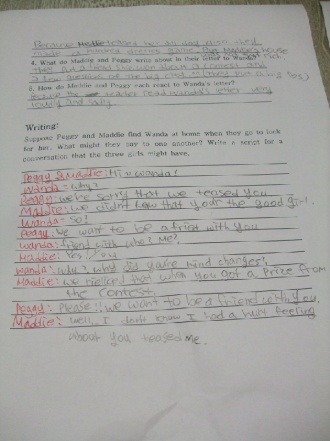 Because teased her
4. What do Maddie and Peggy write about in their letter to Wanda?
5. How do Maddie and Peggy each react to Wanda's letter?
Because the teacher read Wanda's letter very
Writing:
Suppose Peggy and Maddie find Wanda at home when they go to look
for her. What might they say to one another? Write a script for a
conversation that the three girls might have.
Peggy & Maddie: Hi! Wanda!
Wanda- why?
Peggy: we're sorry that we teased you
Maddie: we didn't know that your the good girl.
Wanda- So?
Peggy: we want to be a friend with you
Wanda: friend with who? Me?
Maddie: Yes! You
Wanda: why? what did you're mind changes?
Maddie: we realized that when you got a Prize from
the contest
Peggy: Please! we want to be a friend with you,
Maddie: well, I don't know I had a hurt feeling
about you teased me.